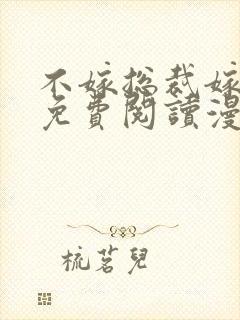 不嫁总裁嫁
免費閱讀漫
梳茗兒